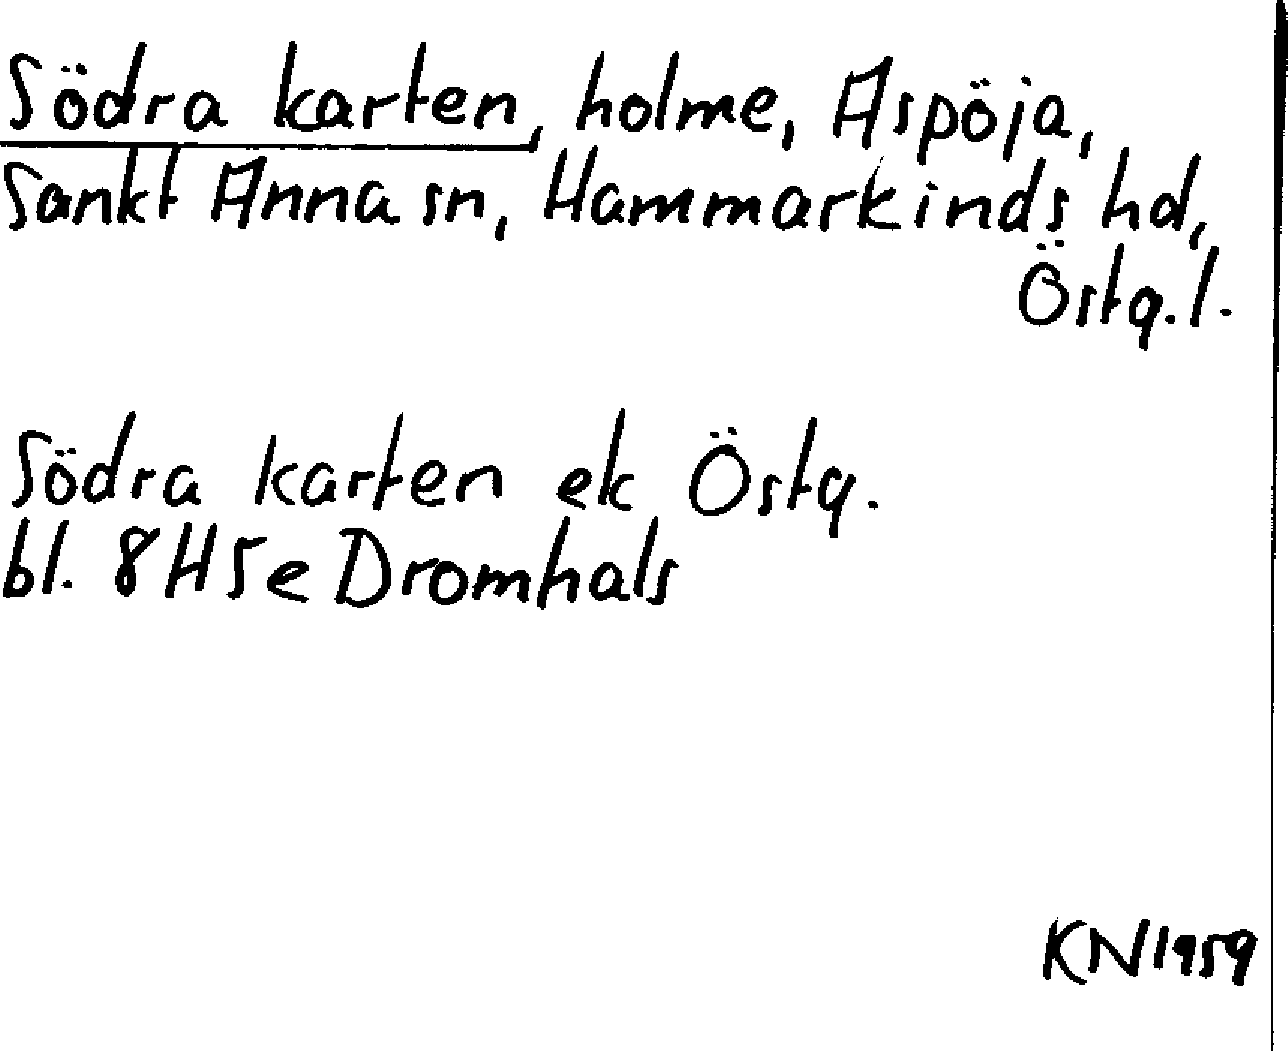 Södra karten, holme, Aspöja,
Sankt Anna sn, Hammarkinds hd,
Östg. l.
Södra karten ek Östg.
bl. 8H5e Dromhals
KN1959